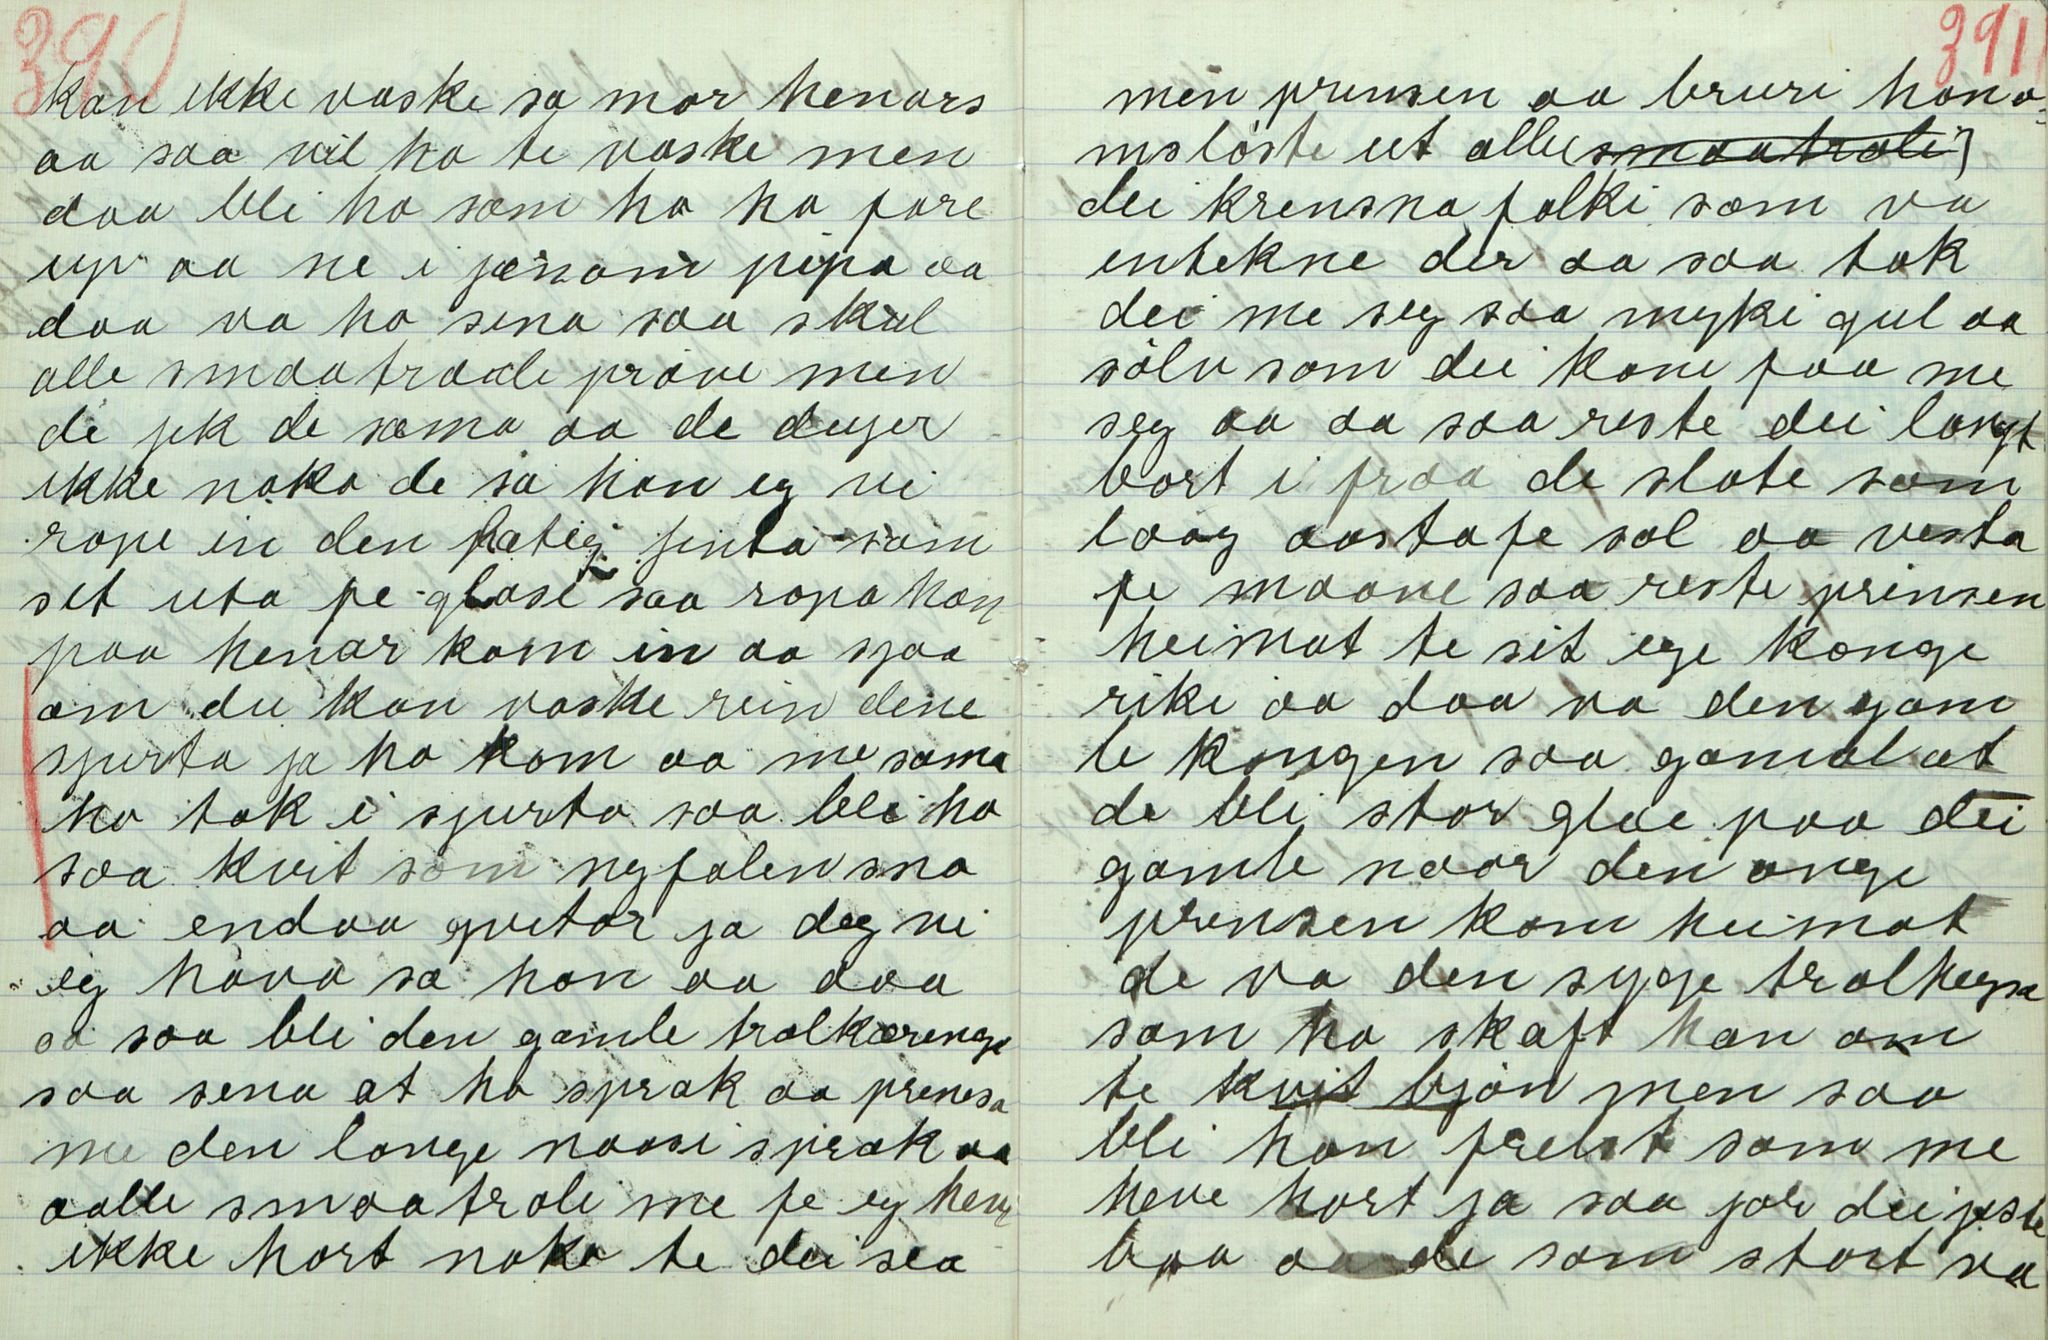 390
kan ikke vaske sa mor henars
aa saa vil ho te vaske men
daa bli ho som ho ha fare
up aa ne i jønom pipa aa
daa va ho sena saa skul
alle smaatraale prøve men
de jek de soma aa de duger
ikke noko de sa han eg vi
rope in den fatig jenta som
set uta fe glase saa ropa han
paa henar kom in aa sjaa
om du kan vaske rein dene
sjurta ja ho kom aa me soma
ho tok i sjurta saa bli ho
saa kvit som nyfalen sno
aa endaa qvitar ja deg vi
eg hava sa han aa daa
aa saa bli den gamle trolkærenge
saa sena at ho sprak aa prinsesa
me den lange naasi sprak aa
aalle smaatroli me fe eg hev
ikke hort noko te dei sea
391
men prinsen aa bruri hana
mslöste ut alle (smaatroli)
dei krensna folki som va
entekne der aa saa tok
dei me seg saa myki gul aa
sölv som dei kone faa me
seg aa aa saa reste dei langt
bort i fraa de slote som
laag aastafe sol aa vesta
fe maane saa reste prinsen
heimat te sit ege konge
rike aa daa va den gam
le kongen saa gamal at
de bli stor glæ paa dei
gamle naar den onge
prinsen kom heimat
de va den syge trolhegsa
som ha skaft han om
te kvit bjøn men saa
bli han frelst som me
heve hort ja saa jor dei jeste
baa aa de som stort va